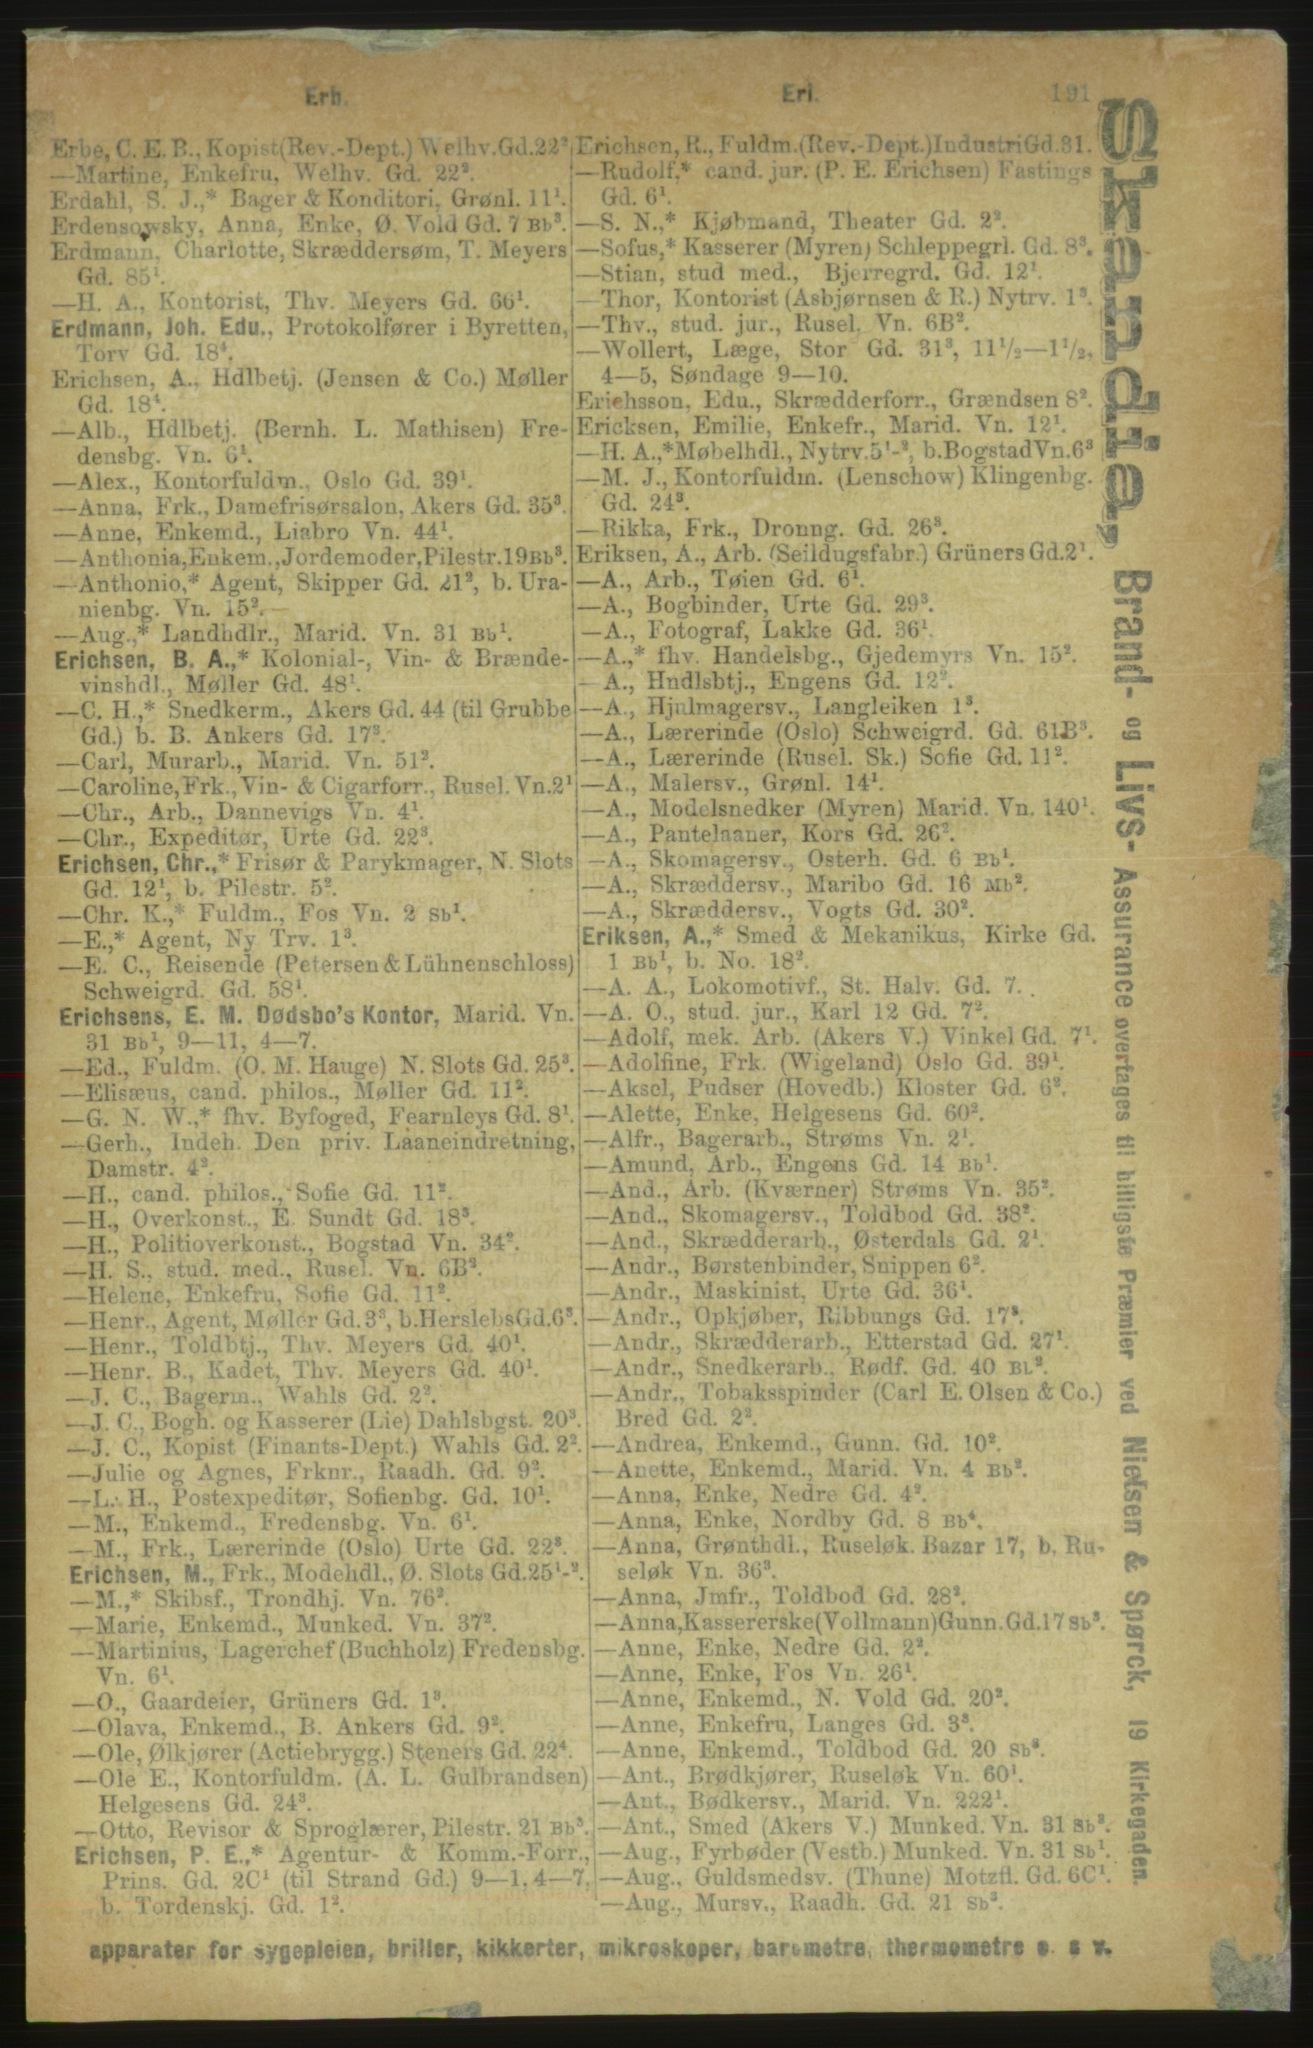 Erh.
Eri.
191
Erbe, C. E. B., Kopist(Rev.-Dept.) Welhv.Gd.22²
—Martine, Enkefru, Welhv. Gd. 22².
Erdahl, S. J.,* Bager & Konditori, Grønl. 11¹.
Erdensowsky, Anna, Enke, Ø. Vold Gd. 7 Bb³.
Erdmann, Charlotte, Skræddersøm, T. Meyers
Gd. 85¹.
—H. A., Kontorist, Thv. Meyers Gd. 66¹.
Erdmann, Joh. Edu., Protokolfører i Byretten,
Torv Gd. 18⁴.
Erichsen, A., Hdlbetj. (Jensen & Co.) Møller
Gd. 18⁴.
—Alb., Hdlbetj. (Bernh. L. Mathisen) Fre-
densbg. Vn. 6¹.
—Alex., Kontorfuldm., Oslo Gd. 39¹.
—Anna, Frk., Damefrisørsalon, Akers Gd. 35³
—Anne, Enkemd., Liabro Vn. 44¹.
—Anthonia,Enkem.,Jordemoder,Pilestr.19Bb³.
—Anthonio,* Agent, Skipper Gd. 21², b. Ura-
nienbg. Vn. 15².
—Aug.,* Landhdlr., Marid. Vn. 31 Bb¹.
Erichsen, B. A.,* Kolonial-, Vin- & Brænde-
vinshdl., Møller Gd. 48¹.
—C. H.,* Snedkerm., Akers Gd. 44 (til Grubbe
Gd.) b. B. Ankers Gd. 17³.
—Carl, Murarb., Marid. Vn. 51².
—Caroline, Frk., Vin- & Cigarforr., Rusel. Vn.2¹
—Chr., Arb., Dannevigs Vn. 4¹.
—Chr., Expeditør, Urte Gd. 22³.
Erichsen, Chr.,* Frisør & Parykmager, N. Slots
Gd. 12¹, b. Pilestr. 5².
—Chr. K.,* Fuldm., Fos Vn. 2 Sb¹.
—E.,* Agent, Ny Trv. 1³.
—E. C., Reisende (Petersen & Lühnenschloss)
Schweigrd. Gd. 58¹.
Erichsens, E. M. Dødsbo's Kontor, Marid. Vn.
31 Bb¹, 9—11, 4—7.
—Ed., Fuldm. (O. M. Hauge) N. Slots Gd. 25³.
—Elisæus, cand. philos., Møller Gd. 11².
—G. N. W.,* fhv. Byfoged, Fearnleys Gd. 8¹.
—Gerh., Indeh. Den priv. Laaneindretning,
Damstr. 4².
—H., cand. philos., Sofie Gd. 11².
—H., Overkonst., E. Sundt Gd. 18³.
—H., Politioverkonst., Bogstad Vn. 34².
—H. S., stud. med., Rusel. Vn. 6B².
—Helene, Enkefru, Sofie Gd. 11².
—Henr., Agent, Møller Gd. 3³, b. Herslebs Gd.6³.
—Henr., Toldbtj., Thv. Meyers Gd. 40¹.
—Henr. B., Kadet, Thv. Meyers Gd. 40¹.
—J. C., Bagerm., Wahls Gd. 2².
—J. C., Bogh. og Kasserer (Lie) Dahlsbgst. 20³.
—J. C., Kopist (Finants-Dept.) Wahls Gd. 2².
—Julie og Agnes, Frknr., Raadh. Gd. 9².
—L. H., Postexpeditør, Sofienbg. Gd. 10¹.
—M., Enkemd., Fredensbg. Vn. 6¹.
—M., Frk., Lærerinde (Oslo) Urte Gd. 22³.
Erichsen, M., Frk., Modehdl., Ø. Slots Gd.25¹-².
—M.,* Skibsf., Trondhj. Vn. 76².
—Marie, Enkemd., Munked. Vn. 37².
—Martinius, Lagerchef (Buchholz) Fredensbg.
Vn. 6¹.
—O., Gaardeier, Grüners Gd. 1³.
—Olava, Enkemd., B. Ankers Gd. 9².
—Ole, Ølkjører (Actiebrygg.) Steners Gd. 22⁴.
—Ole E., Kontorfuldm. (A. L. Gulbrandsen)
Helgesens Gd. 24³.
—Otto, Revisor & Sproglærer, Pilestr. 21 Bb³.
Erichsen, P. E.,* Agentur- & Komm.-Forr.,
Prins. Gd. 2C¹ (til Strand Gd.) 9—1, 4—7,
b. Tordenskj. Gd. 1².
Erichsen, R., Fuldm.(Rev.-Dept.)IndustriGd.31.
—Rudolf,* cand. jur. (P. E. Erichsen) Fastings
Gd. 6¹.
—S. N.,* Kjøbmand, Theater Gd. 2².
—Sofus,* Kasserer (Myren) Schleppegrl. Gd. 8³.
—Stian, stud med., Bjerregrd. Gd. 12¹.
—Thor, Kontorist (Asbjørnsen & R.) Nytrv. 1³.
—Thv., stud. jur., Rusel. Vn. 6B².
—Wollert, Læge, Stor Gd. 31³, 11¹/₂—1¹/₂,
4—5, Søndage 9—10.
Erichsson, Edu., Skrædderforr., Grændsen 8².
Ericksen, Emilie, Enkefr., Marid. Vn. 12¹.
—H. A.,*Møbelhdl., Nytrv.5¹-², b.BogstadVn.6³
—M. J., Kontorfuldm. (Lenschow) Klingenbg.
Gd. 24³.
—Rikka, Frk., Dronng. Gd. 26³.
Eriksen, A., Arb. (Seildugsfabr.) Grüners Gd.2¹.
—A., Arb., Tøien Gd. 6¹.
—A., Bogbinder, Urte Gd. 29³.
—A., Fotograf, Lakke Gd. 36¹.
—A.,* fhv. Handelsbg., Gjedemyrs Vn. 15².
—A., Hndlsbtj., Engens Gd. 12².
—A., Hjulmagersv., Langleiken 1³.
—A., Lærerinde (Oslo) Schweigrd. Gd. 61B³.
—A., Lærerinde (Rusel. Sk.) Sofie Gd. 11².
—A., Malersv., Grønl. 14¹.
—A., Modelsnedker (Myren) Marid. Vn. 140¹.
—A., Pantelaaner, Kors Gd. 26².
—A., Skomagersv., Osterh. Gd. 6 Bb¹.
—A., Skræddersv., Maribo Gd. 16 Mb².
—A., Skræddersv., Vogts Gd. 30².
Eriksen, A.,* Smed & Mekanikus, Kirke Gd.
1 Bb¹, b. No. 18².
—A. A., Lokomotivf., St. Halv. Gd. 7.
—A. O., stud. jur., Karl 12 Gd. 7².
—Adolf, mek. Arb. (Akers V.) Vinkel Gd. 7¹.
—Adolfine, Frk. (Wigeland) Oslo Gd. 39¹.
—Aksel, Pudser (Hovedb.) Kloster Gd. 6².
—Alette, Enke, Helgesens Gd. 60².
—Alfr., Bagerarb., Strøms Vn. 2¹.
—Amund, Arb., Engens Gd. 14 Bb¹.
—And., Arb. (Kværner) Strøms Vn. 35².
—And., Skomagersv., Toldbod Gd. 38².
—And., Skrædderarb., Østerdals Gd. 2¹.
—Andr., Børstenbinder, Snippen 6².
—Andr., Maskinist, Urte Gd. 36¹.
—Andr., Opkjøber, Ribbungs Gd. 17³.
—Andr., Skrædderarb., Etterstad Gd. 27¹.
—Andr., Snedkerarb., Rødf. Gd. 40 BL².
—Andr., Tobaksspinder (Carl E. Olsen & Co.)
Bred Gd. 2².
—Andrea, Enkemd., Gunn. Gd. 10².
—Anette, Enkemd., Marid. Vn. 4 Bb².
—Anna, Enke, Nedre Gd. 4².
—Anna, Enke, Nordby Gd. 8 Bb⁴.
—Anna, Grønthdl., Ruseløk. Bazar 17, b. Ru-
seløk Vn. 36³.
—Anna, Jmfr., Toldbod Gd. 28².
—Anna,Kassererske(Vollmann)Gunn.Gd.17 Sb³.
—Anne, Enke, Nedre Gd. 2².
—Anne, Enke, Fos Vn. 26¹.
—Anne, Enkemd., N. Vold Gd. 20².
—Anne, Enkefru, Langes Gd. 3³.
—Anne, Enkemd., Toldbod Gd. 20 Sb³.
—Ant., Brødkjører, Ruseløk Vn. 60¹.
—Ant., Bødkersv., Marid. Vn. 222¹.
—Ant., Smed (Akers V.) Munked. Vn. 31 Sb².
—Aug., Fyrbøder (Vestb.) Munked. Vn. 31 Sb¹.
—Aug., Guldsmedsv. (Thune) Motzfl. Gd. 6C¹.
—Aug., Mursv., Raadh. Gd. 21 Sb³.
„Skandia“, Brand- og Livs- Assurance overtages til billigste Præmier ved Nielsen & Spørck, 19 Kirkegaden.
apparater for sygepleien, briller, kikkerter, mikroskoper, barometre, thermometre o. s v.